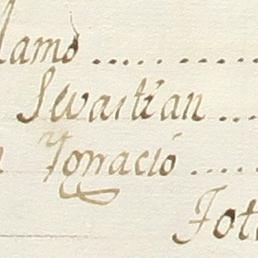 lamo ..........
Sevastian ...
n Ygnacio .....
Tot